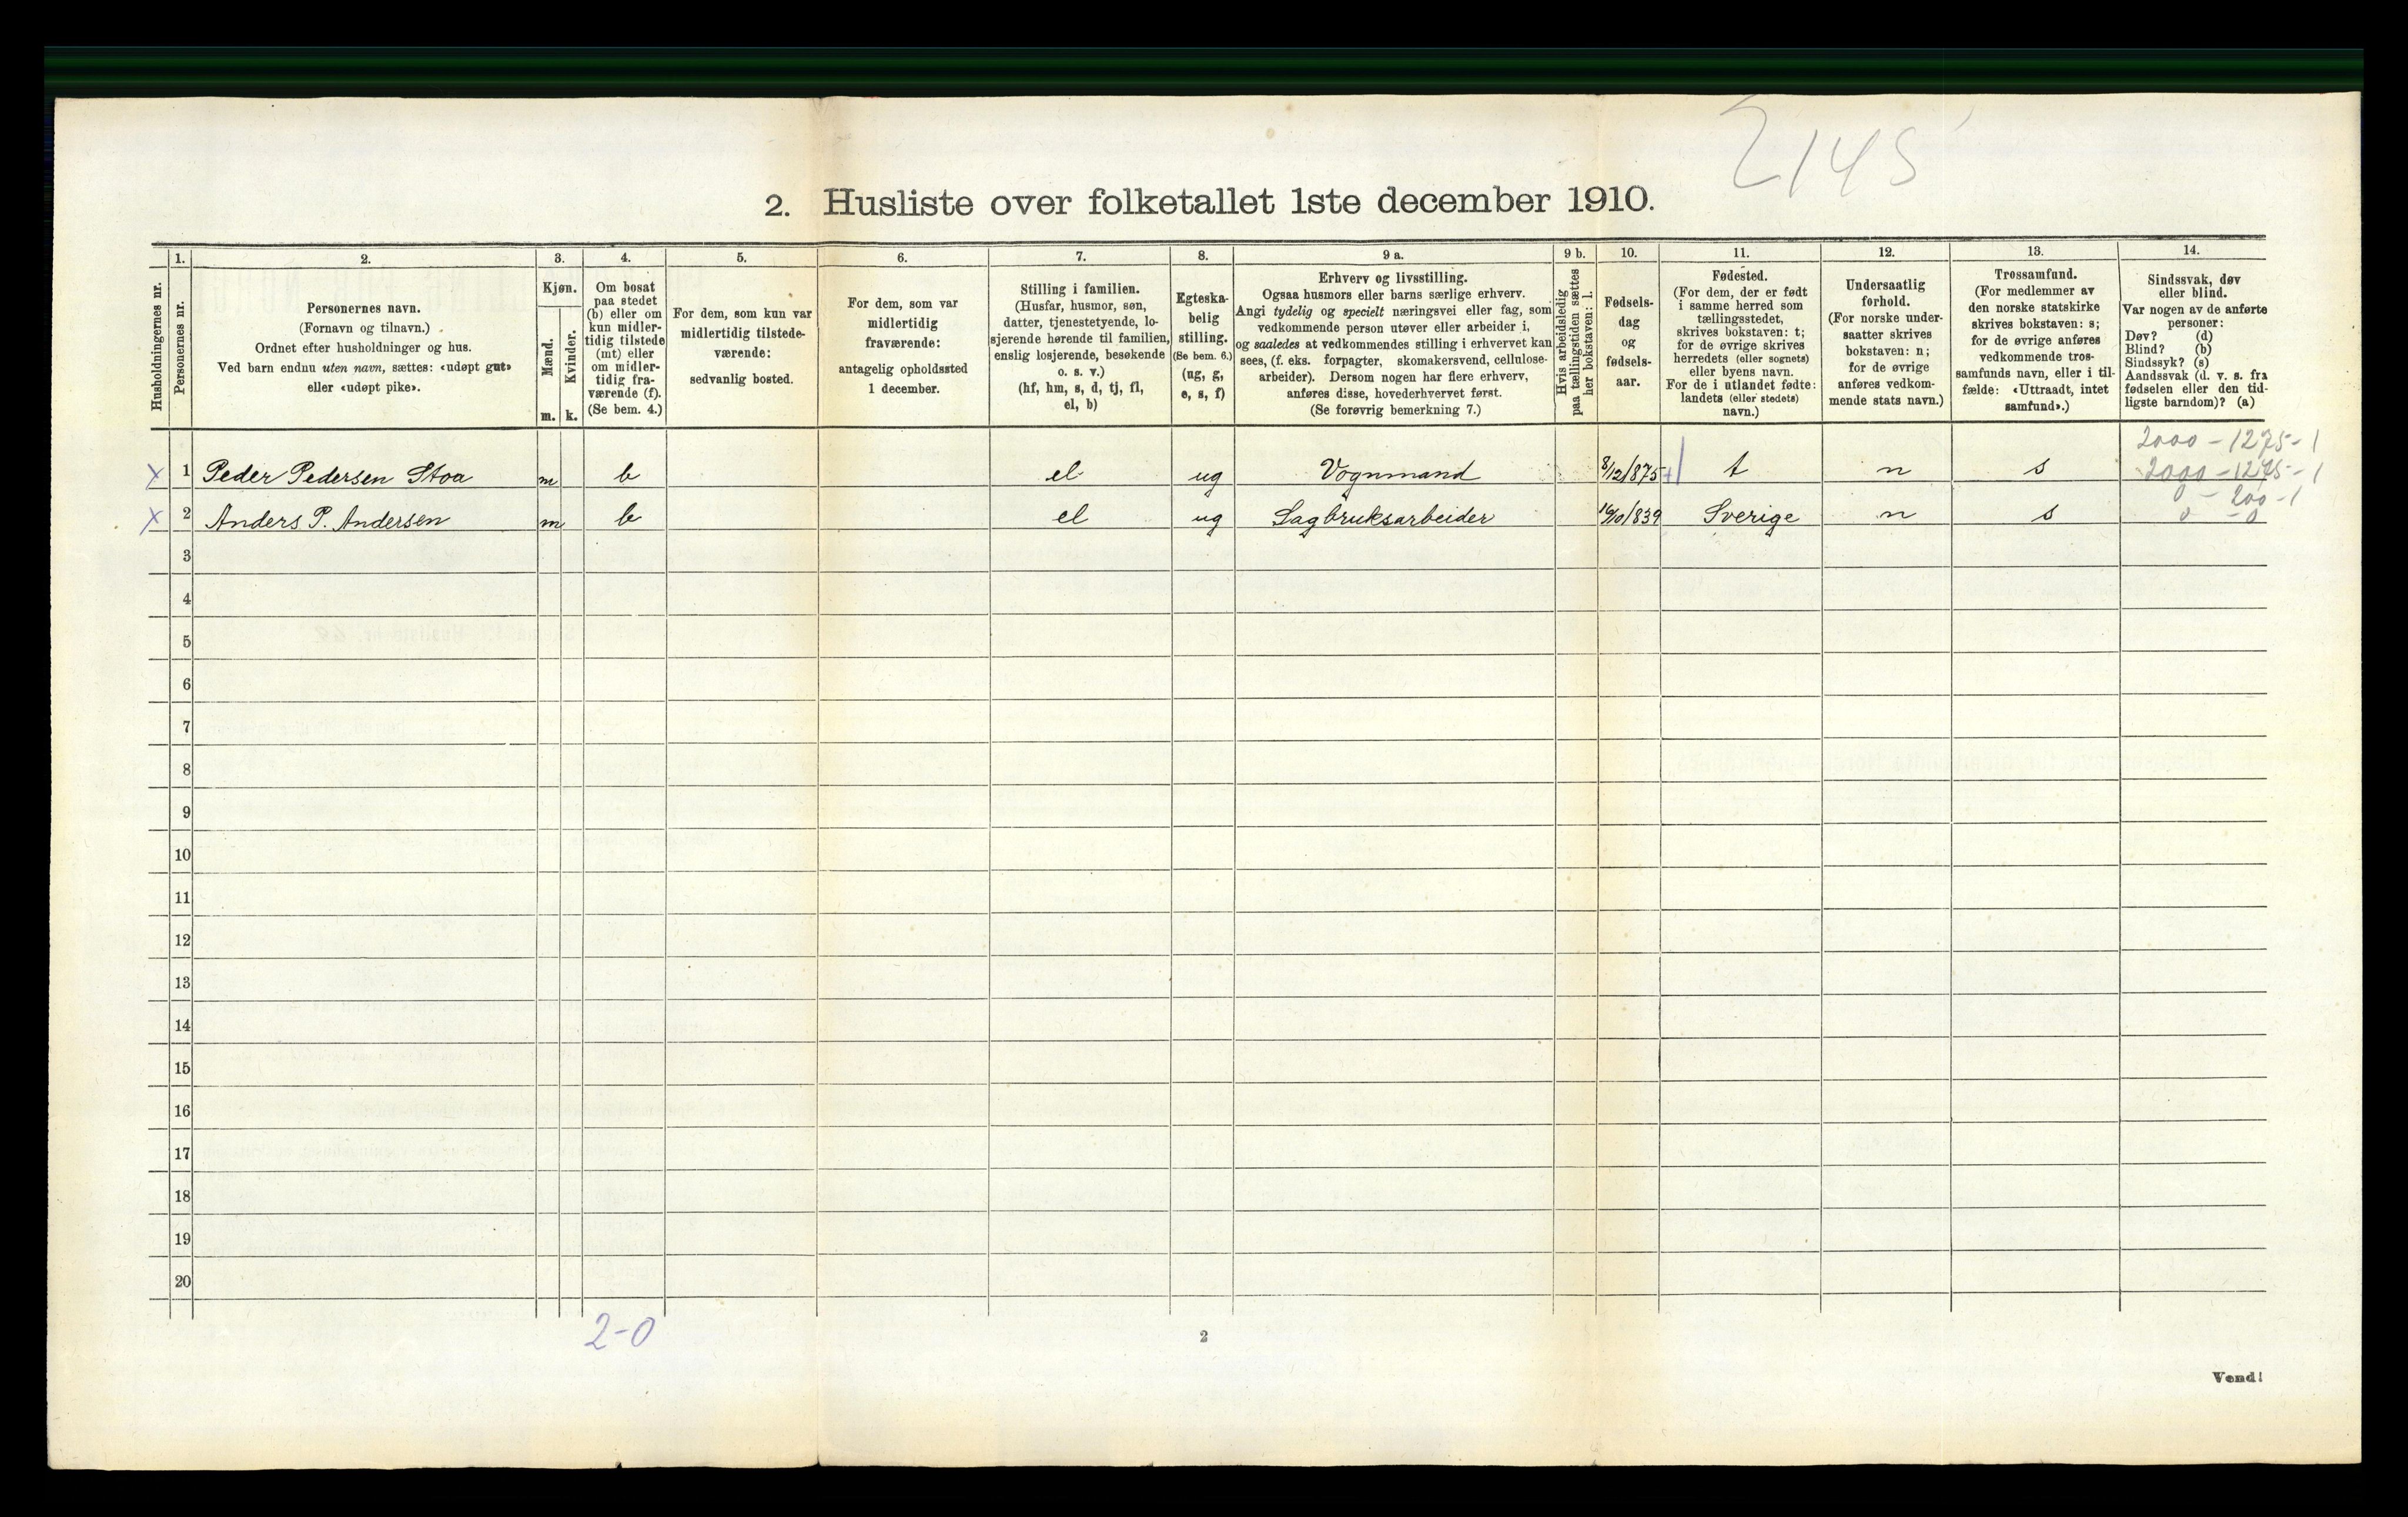 2145
2. Husliste over folketallet 1ste december 1910.
Husholdningernes nr.
1.
Personernes nr.
2.
Personernes navn.
(Fornavn og tilnavn.)
Ordnet efter husholdninger og hus.
Ved barn endnu uten navn, sættes: «udøpt gut»
eller «udøpt pike».
3.
Kjøn.
Mænd.
Kvinder.
m. k.
4.
Om bosat
paa stedet
(b) eller om
kun midler-
tidig tilstede
(mt) eller
om midler-
tidig fra-
værende (f).
(Se bem. 4.)
5.
For dem, som kun var
midlertidig tilstede-
værende:
sedvanlig bosted.
6.
For dem, som var
midlertidig
fraværende:
antagelig opholdssted
1 december.
7.
Stilling i familien.
(Husfar, husmor, søn,
datter, tjenestetyende, lo-
sjerende hørende til familien,
enslig losjerende, besøkende
o. s. v.)
(hf, hm, s, d, tj, fl,
el, b)
8.
Egteska-
belig
stilling.
(Se bem. 6.)
(ug, g,
e, s, f)
9 a.
Erhverv og livsstilling.
Ogsaa husmors eller barns særlige erhverv.
Angi tydelig og specielt næringsvei eller fag, som
vedkommende person utøver eller arbeider i,
og saaledes at vedkommendes stilling i erhvervet kan
sees, (f. eks. forpagter, skomakersvend, cellulose-
arbeider). Dersom nogen har flere erhverv,
anføres disse, hovederhvervet først.
(Se forøvrig bemerkning 7.)
9 b.
Hvis arbeidsledig
paa tællingstiden sættes
her bokstaven: l.
10.
Fødsels-
dag
og
fødsels-
aar.
11.
Fødested.
(For dem, der er født
i samme herred som
tællingsstedet,
skrives bokstaven: t;
for de øvrige skrives
herredets (eller sognets)
eller byens navn.
For de i utlandet fødte:
landets (eller stedets)
navn.)
12.
Undersaatlig
forhold.
(For norske under-
saatter skrives
bokstaven: n;
for de øvrige
anføres vedkom-
mende stats navn.)
13.
Trossamfund.
(For medlemmer av
den norske statskirke
skrives bokstaven: s;
for de øvrige anføres
vedkommende tros-
samfunds navn, eller i til-
fælde: «Uttraadt, intet
samfund».)
14.
Sindssvak, døv
eller blind.
Var nogen av de anførte
personer:
Døv? (d)
Blind? (b)
Sindssyk? (s)
Aandssvak (d. v. s. fra
fødselen eller den tid-
ligste barndom)? (a)
2000 - 1275 - 1
x 1 Peder Pedersen Stoa m b el ug Vognmand 8/12/875 t n s 2000 - 1275 - 1
0 - 200 - 1
x 2 Anders P. Andersen m b el ug Sagbruksarbeider /10/839 Sverige n s 0 - 0
3
4
5
6
7
8
9
10
11
12
13
14
15
16
17
18
19
20
2-0
2
Vend!